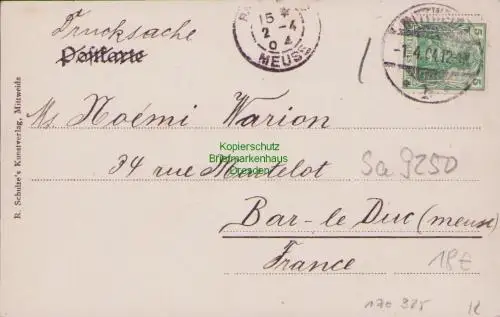 Drucksache
Postkarte
15 *
2 -4
04
MEUSE
MITTWEIDA
-1.4.04.12-
5 5
Ms Noémi Warion
Kopierschutz
Briefmarkenhaus
Dresden
34 rue
Sa 9250
Bar-le Duc (meuse)
France
18€
170 385
R. Schulze's Kunstverlag, Mittweida